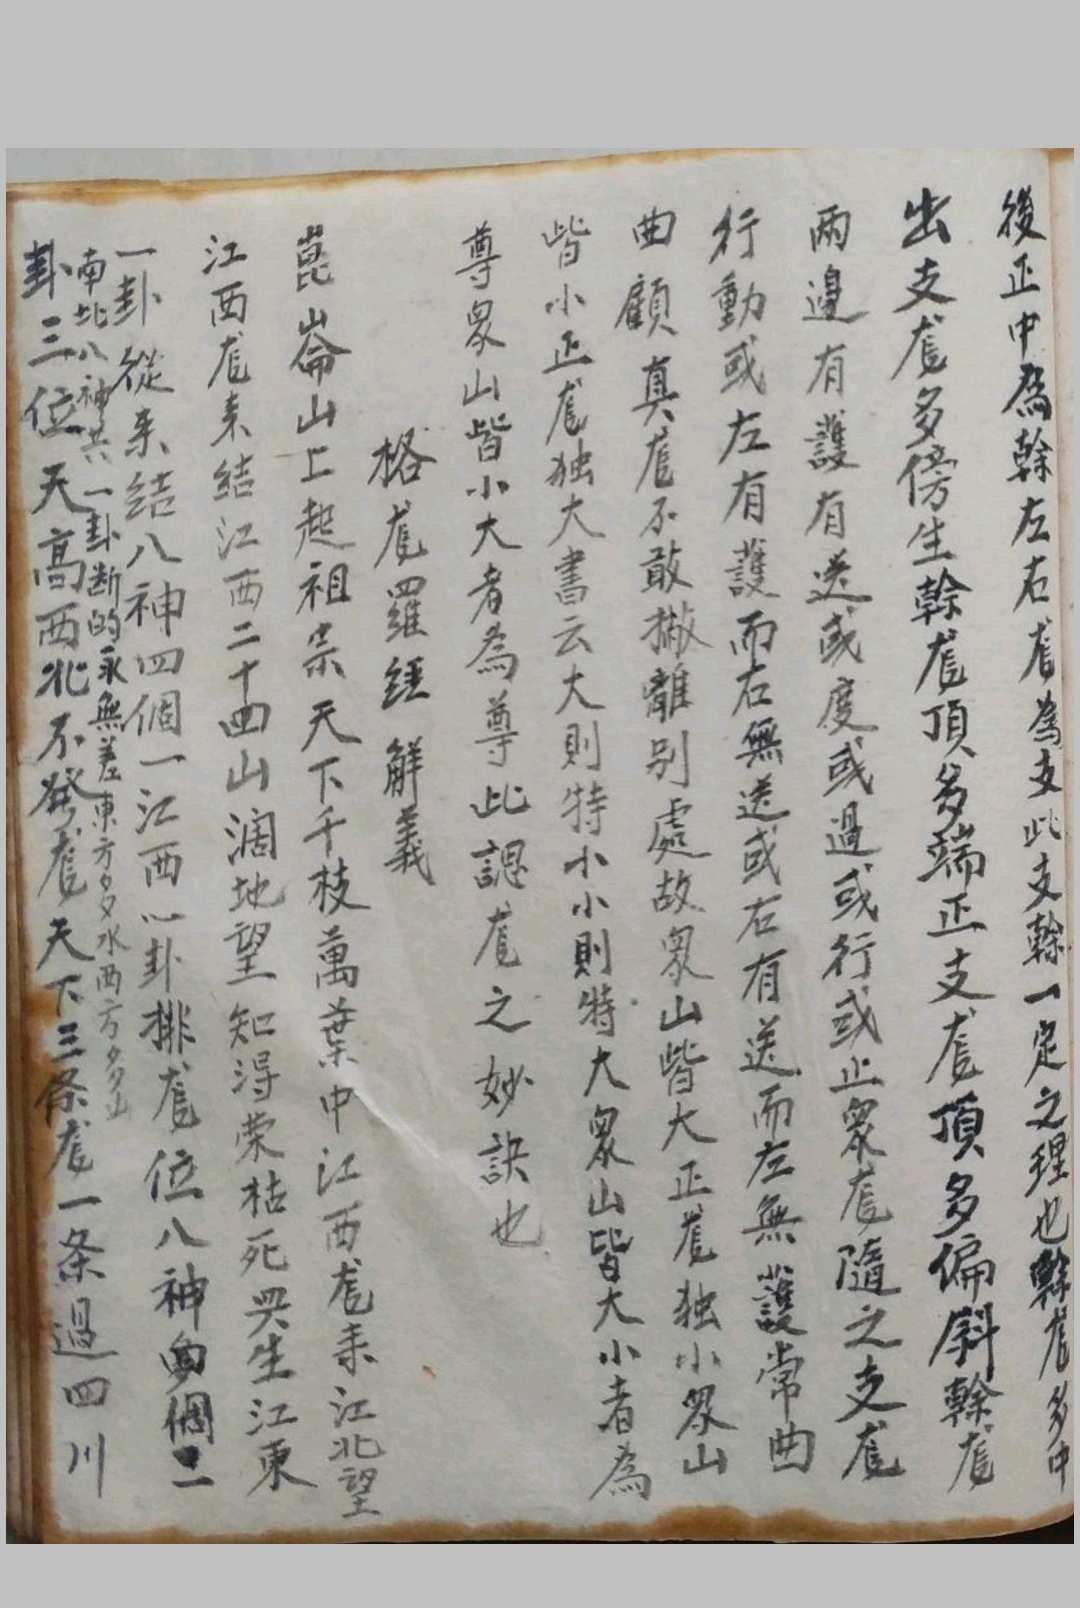 後正中為幹左右尨為支此支幹一定之理也幹尨多中
出支尨多傍生幹尨頂多端正支尨頂多偏斜幹尨
兩邊有護有送或度或過或行或止衆尨隨之支尨
行動或左有護而右無送或右有送而左無護常曲
曲顧真尨不敢撇離别處故衆山皆大正尨独小衆山
皆小正尨独大書云大則特小小則特大衆山皆大小者為
尊衆山皆小大者為尊此認尨之妙訣也
格尨羅經解義
崑崙山上起祖宗天下千枝萬葉中江西尨来江北望
江西尨来結江西二十四山濶地望知得荣枯死與生江東
一卦從来結八神四個一江西一卦排尨位八神四個二
南北八神共一卦断的永無差東方多水西方多山
卦三位天高西北不發尨天下三条尨一条過四川